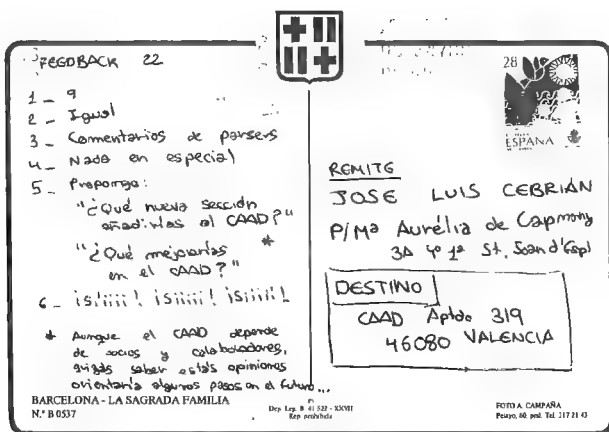 FEEDBACK 22
1 _ 9
2 _ Igual
3 _ Comentarios de parsers
4 _ Nada en especial
5 _ Propongo:
"¿Qué nueva sección
añadirías al CAAD?"
"¿Qué mejorarías *
en el CAAD?"
6 _ ¡Siiii! ¡Siiii! ¡Siiii!
* Aunque el CAAD depende
de socios y colaboradores,
quizás saber estas opiniones
orientaría algunos pasos en el futuro...
BARCELONA - LA SAGRADA FAMILIA
N.º B 0537
Dep. Leg. B. 41 522 - XXVII
Rep. prohibida
28
ESPAÑA
REMITE
JOSE LUIS CEBRIÁN
P/Mª Aurélia de Capmany
3A 4º 1ª St. Joan d'Espí
DESTINO
CAAD Aptdo 319
46080 VALENCIA
FOTO A. CAMPAÑA
Pelayo, 60, pral. Tel. 317 21 43